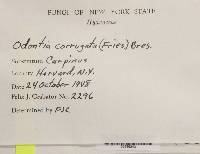 FUNGI OF NEW YORK STATE
Odontia corrugata (Fries) Bres.
Substratum Carpinus
Locality Harvard, N.Y.
Date 24 October 1948
Felix J. Czabator No. 2296
Determined by FJC